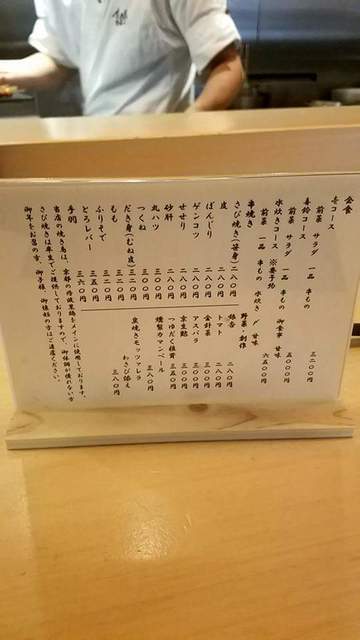 会食
壱コース
前菜 サラダ 一品 串もの 三二〇〇円
寿鈴コース
前菜 サラダ 一品 串もの 御食事 甘味 五〇〇〇円
水炊きコース ※要予約
前菜 一品 串もの 水炊き 〆 甘味 六五〇〇円
串焼き
さび焼き(笹身) 二八〇円
皮 二八〇円
ぼんじり 二八〇円
ゲンコツ 二八〇円
せせり 二八〇円
砂肝 二八〇円
丸ハツ 三〇〇円
つくね 三〇〇円
だき身(むね皮) 三二〇円
もも 三二〇円
ふりそで 三二〇円
とろレバー 三五〇円
手羽 三六〇円
野菜・創作
銀杏 二八〇円
トマト 二八〇円
金針菜 三〇〇円
アスパラ 三〇〇円
京生麩 三五〇円
つゆだく椎茸 三五〇円
燻製カマンベール 三八〇円
炭焼きモッツァレラ
わさび添え 三八〇円
当店の焼き鳥は、京都の丹波黒鶏をメインに使用しております。
さび焼きは半生でご提供しておりますので、御体調が優れない方
御年をお召の方、御子様、御妊婦の方はご遠慮ください。